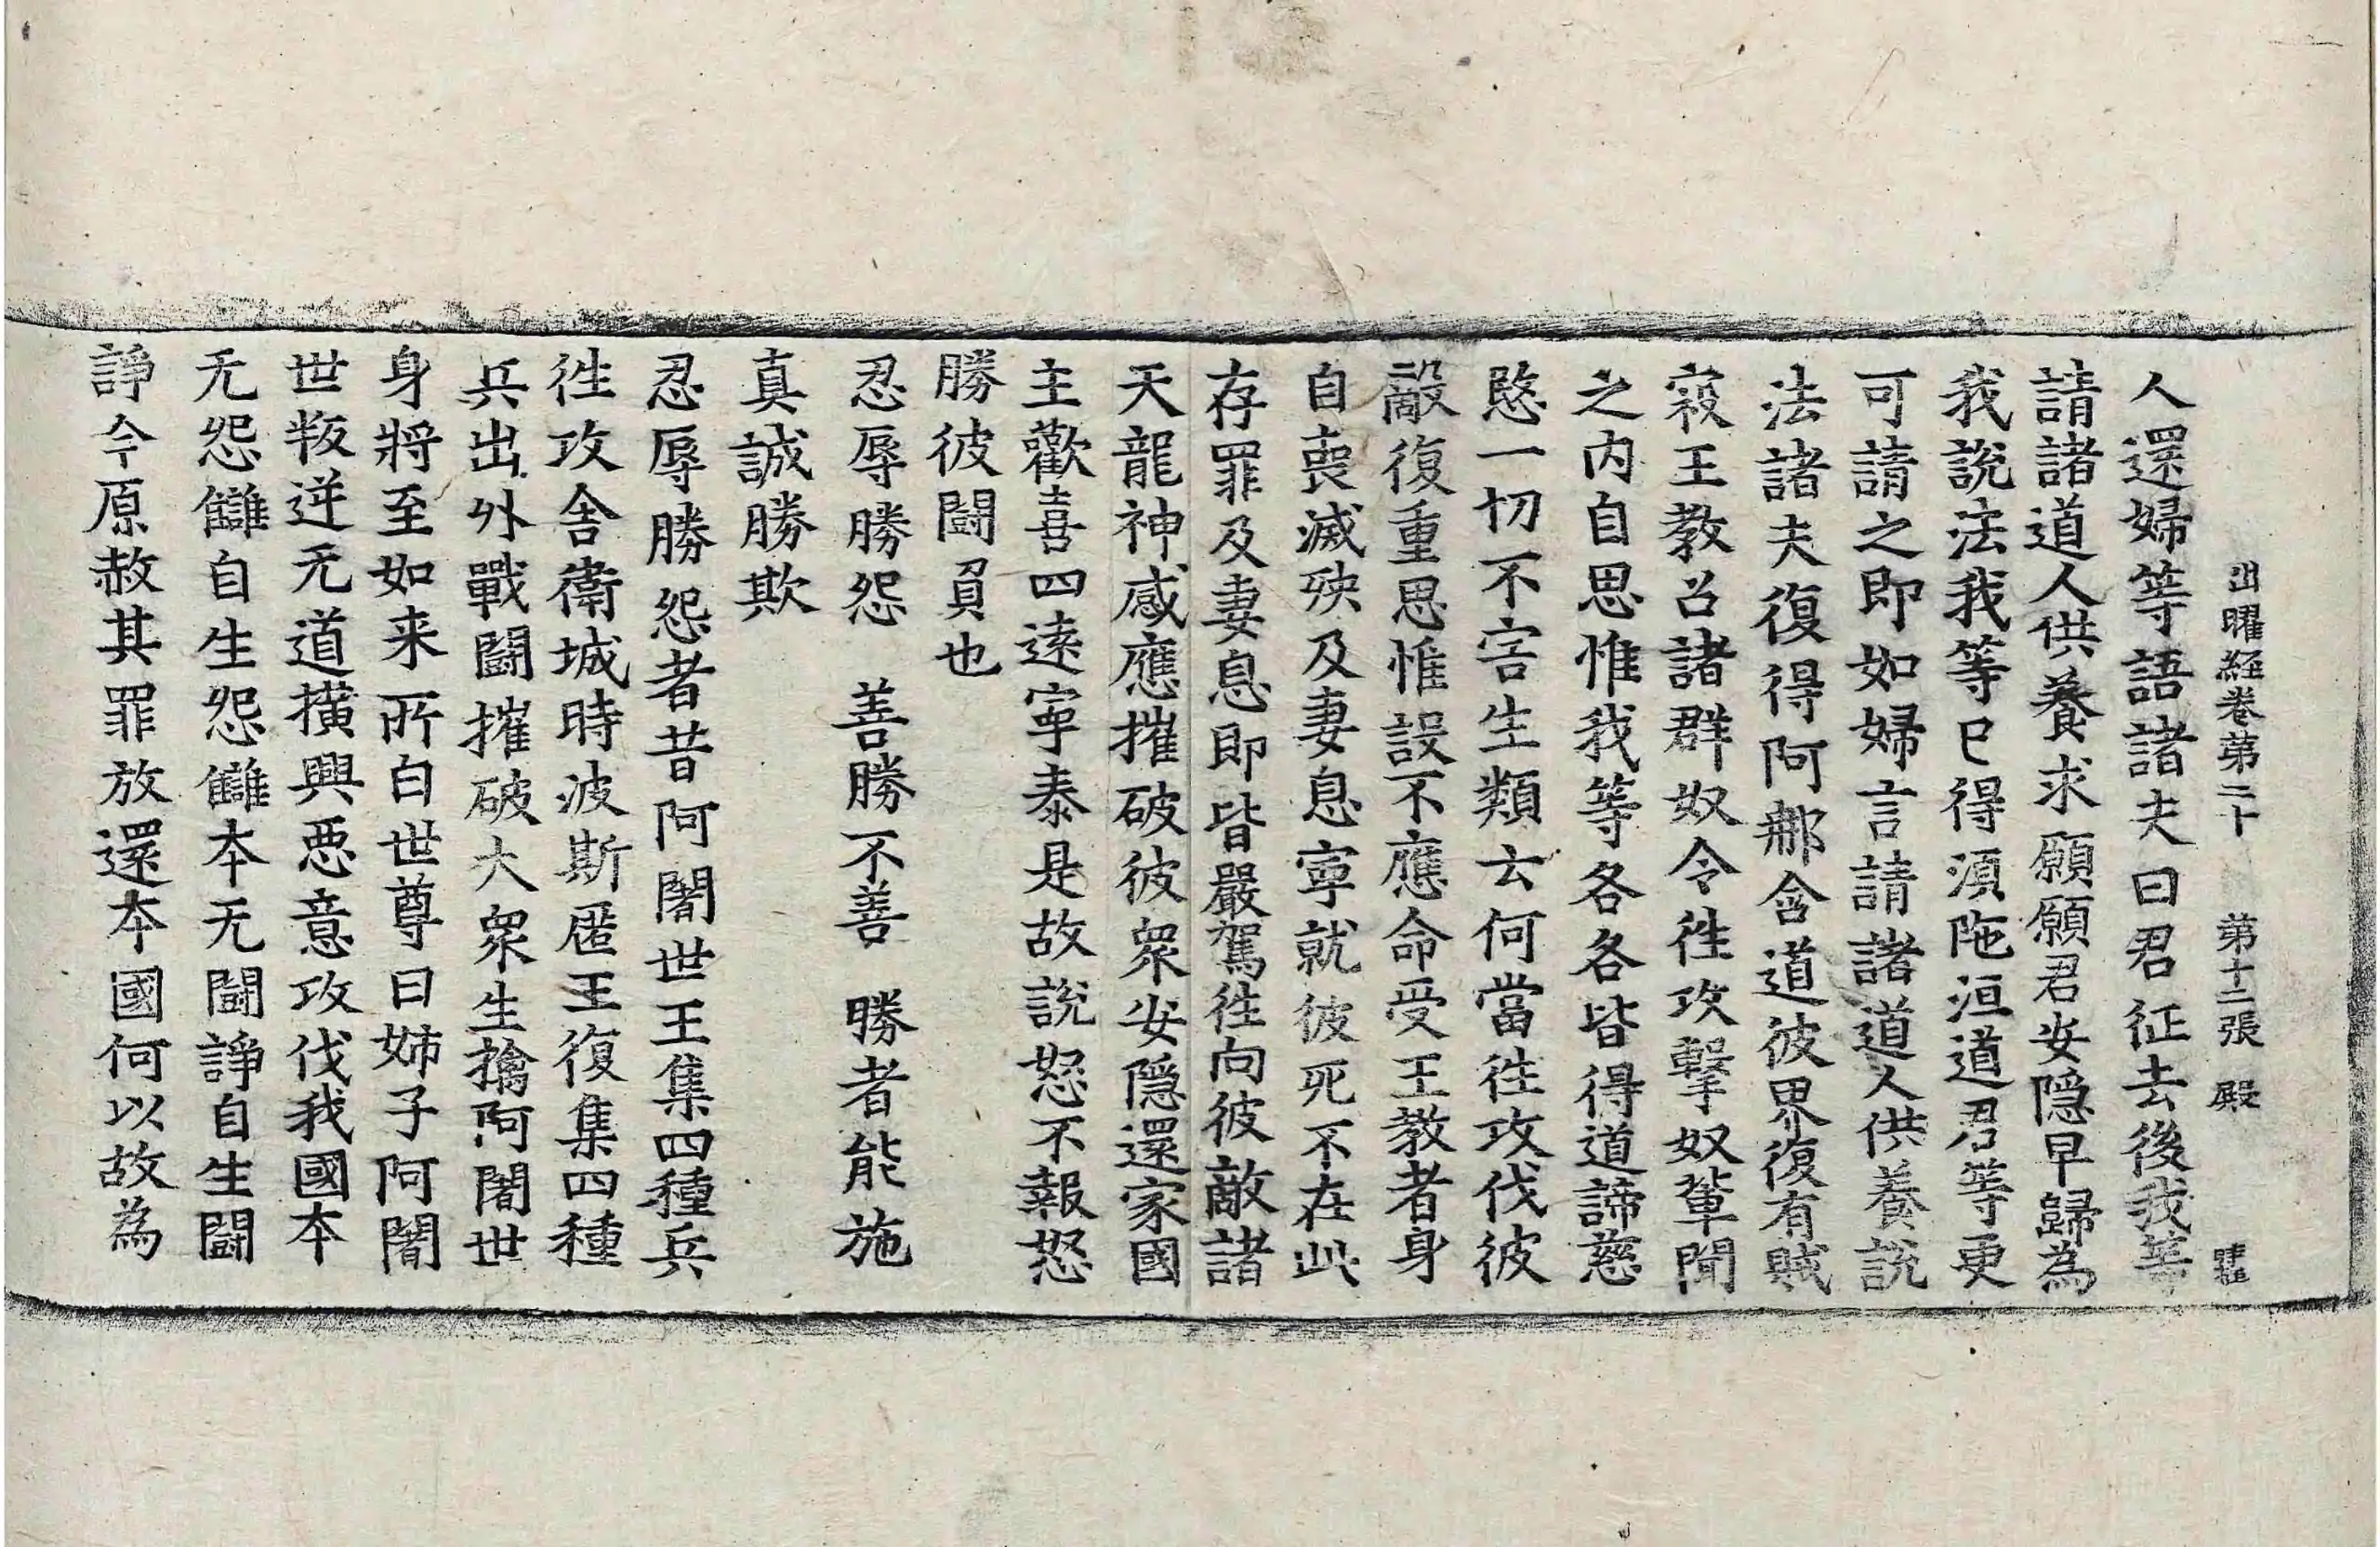 出曜經卷第二十 第十二張 殿
人還婦等語諸夫曰君征去後我等
請諸道人供養求願願君安隱早歸為
我說法我等已得須陁洹道君等更
可請之即如婦言請諸道人供養說
法諸夫復得阿那含道彼界復有賊
寇王教召諸群奴令徃攻擊奴輩聞
之內自思惟我等各各皆得道諦慈
愍一切不害生類云何當徃攻伐彼
敵復重思惟設不應命受王教者身
自喪滅殃及妻息寧就彼死不在此
存罪及妻息即皆嚴駕徃向彼敵諸
天龍神感應摧破彼衆安隱還家國
主歡喜四遠寧泰是故說怒不報怒
勝彼鬪負也
忍辱勝怨 善勝不善 勝者能施
真誠勝欺
忍辱勝怨者昔阿闍世王集四種兵
徃攻舍衛城時波斯匿王復集四種
兵出外戰鬪摧破大衆生擒阿闍世
身將至如来所白世尊曰姊子阿闍
世叛逆无道撗興惡意攻伐我國本
无怨讎自生怨讎本无鬪諍自生鬪
諍今原赦其罪放還本國何以故為